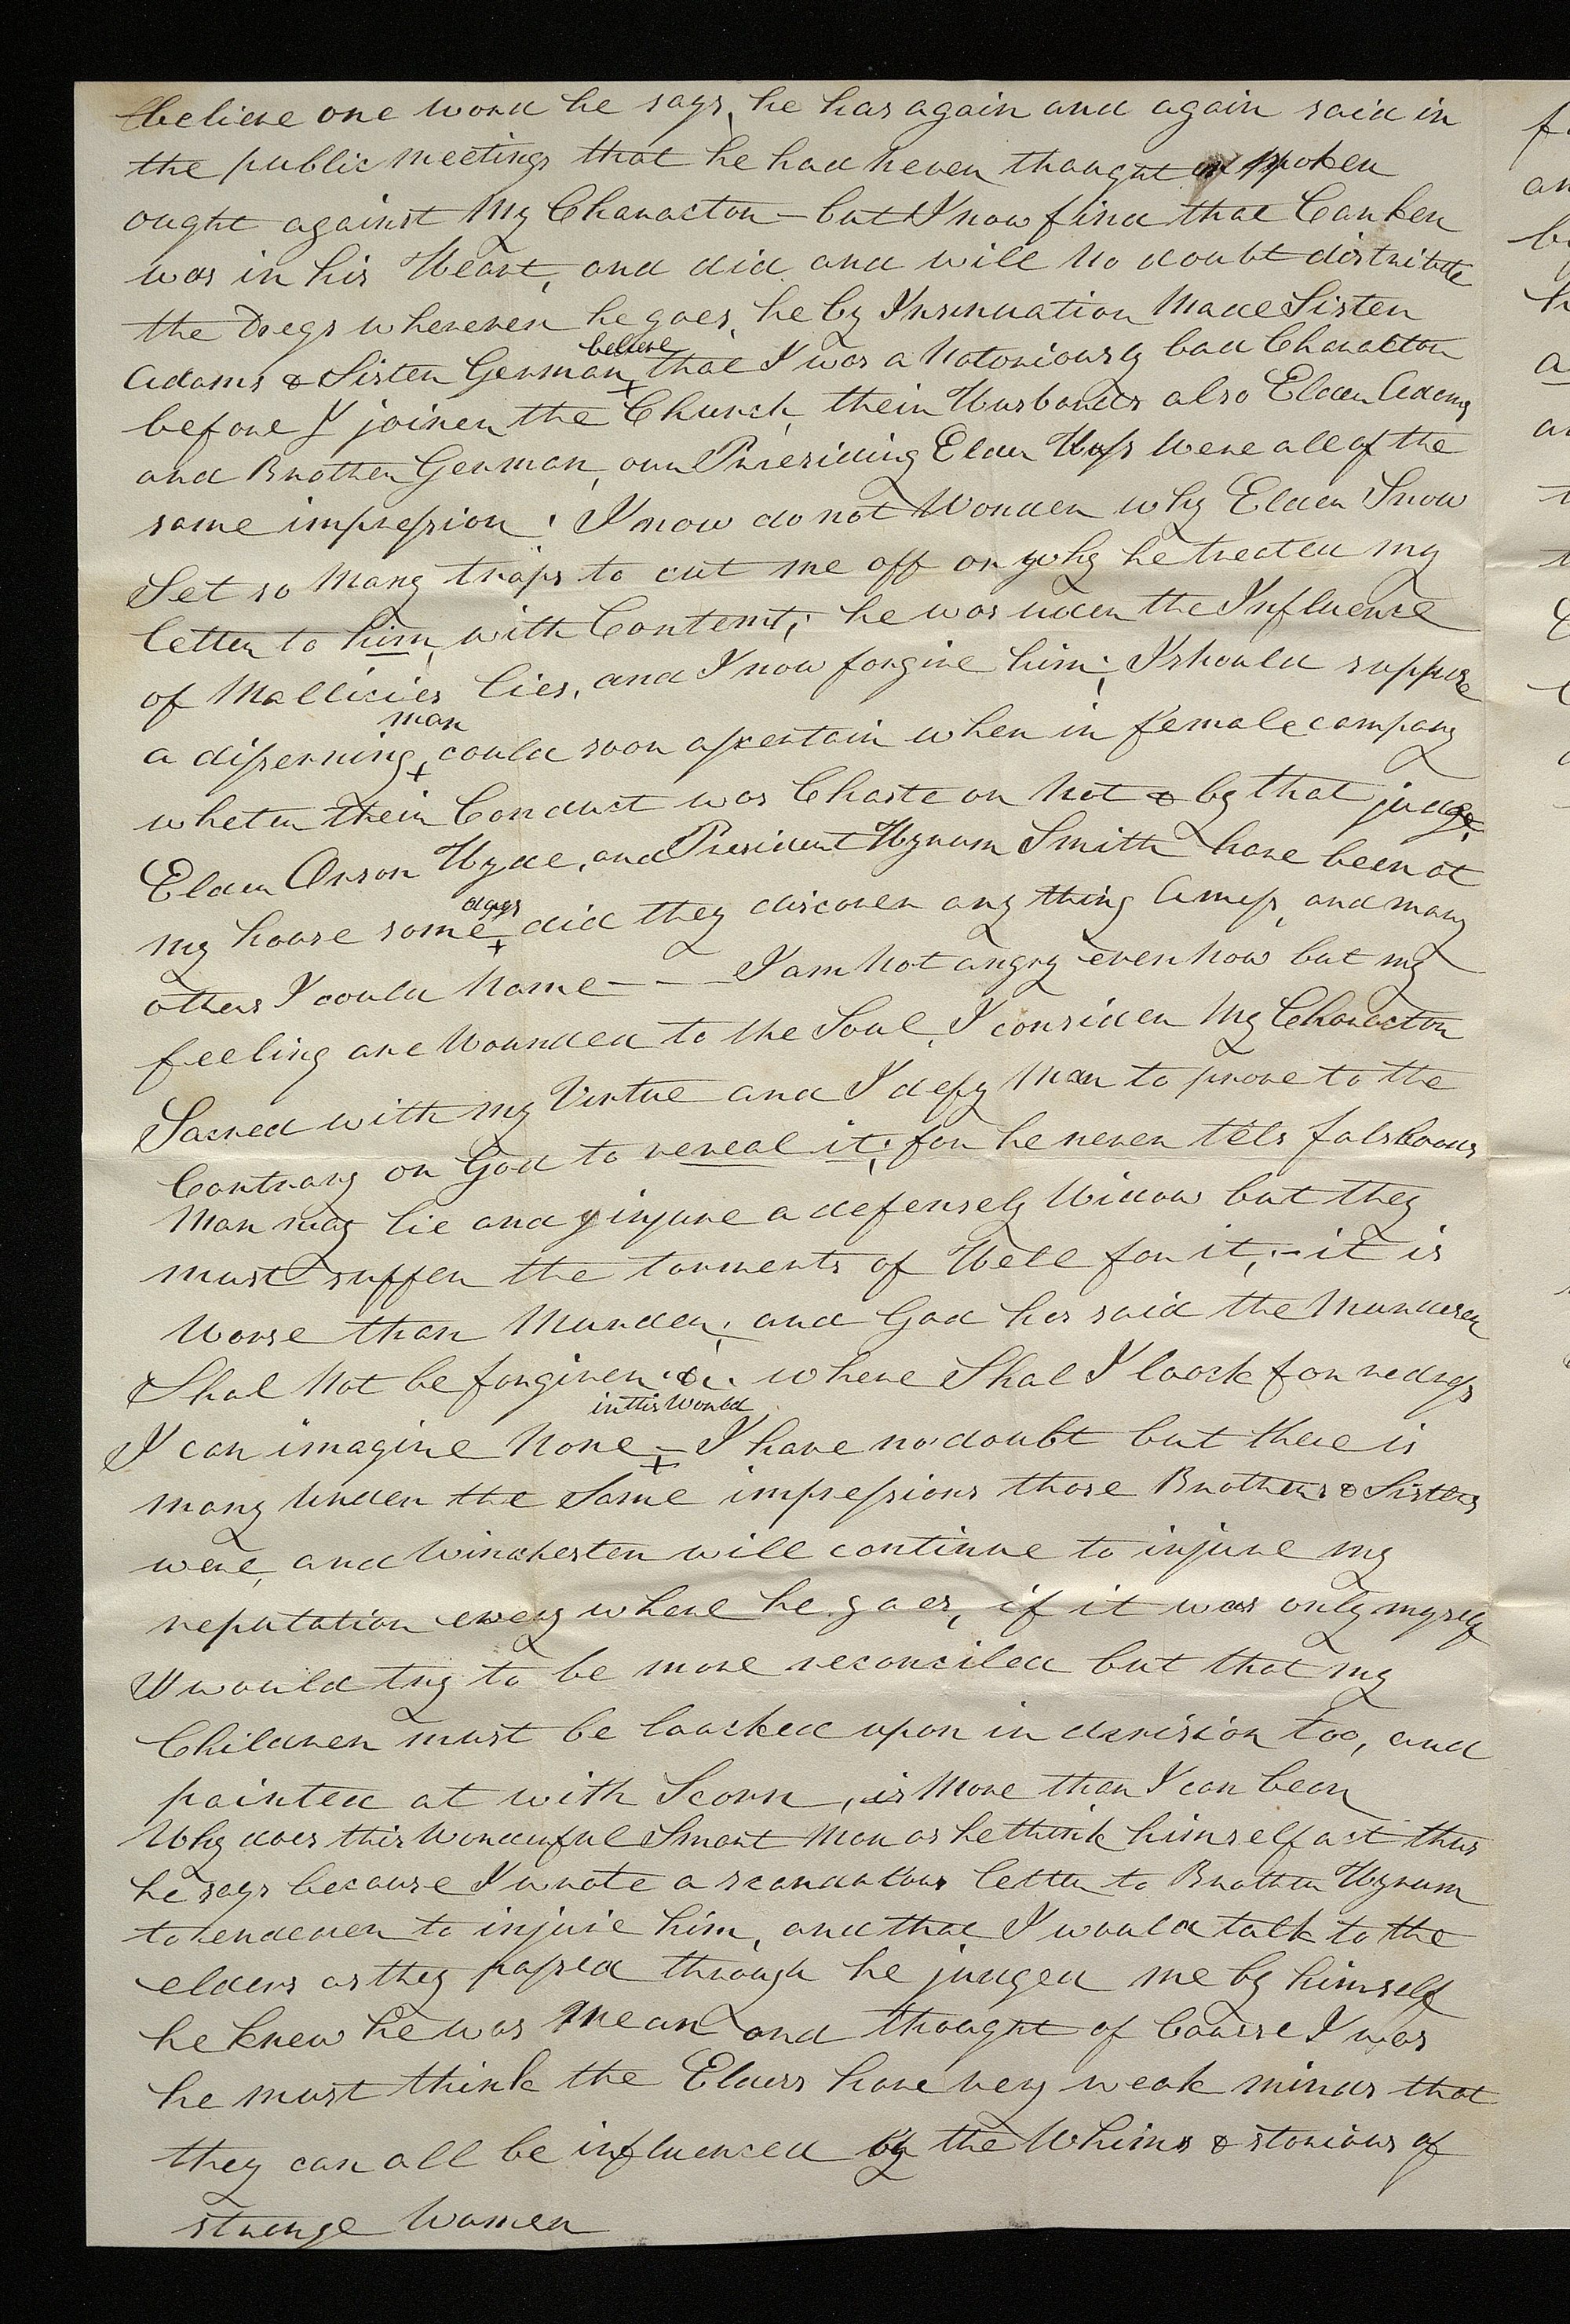 believe one word he says, he has again and again said in
the public meetings that he had never thought or spoken
ought against My Charactor — but I now find that Canker
was in his Heart, and did and will no doubt distribute
the Dregs wherever he goes, he by Insinuation Made Sister
Adams & Sister German believe that I was a Notoriously bad Charactor
before I joined the Church, their Husbands also Elder Adams
and Brother German, our Presiding Elder Hess Were all of the
same impression; I now do not Wonder why Elder Snow
Set so Many traps to cut me off or why he treated my
letter to him, with Contemt; he was uder the Influence
of Mallicies lies, and I now forgive him; I should suppose
a disserning man could soon assertain when in female company
whether their Conduct was Chaste or Not & by that judge,
Elder Orson Hyde, and President Hyrum Smith have been at
my house some days did they discover any thing Amiss, and many
others I could Name — — — I am Not angry even now but my
feeling are Wounded to the Soul, I consider My Charactor
Sacred with my Virtue and I defy Man to prove to the
Contrary or God to reveal it; for he never tels falshoods
Man may lie and injure a defensely Widow but they
must suffer the torments of Hell for it; - it is
Worse than Murder; and God has said the Murderer
Shal Not be forgiven &c. where Shal I loock for redress
I can imagine None in this World — I have no doubt but there is
many Under the Same impressions those Brothers & Sisters
were, and Winchester will continue to injure my
reputation every where he goes, if it was only myself
I would try to be more reconciled but that my
Children must be loocked upon in derision too, and
pointed at with Scorn, is More than I can bear
Why does this Wonderful Smart Man as he think himself act thus
he says because I wrote a scandalous letter to Brother Hyrum
to endever to injure him, and that I would talk to the
elders as they passed through he judged me by himself
he knew he was Mean and thought of Course I was
he must think the Elders have very weak minds that
they can all be influenced by the Whims & storious of
strange Women